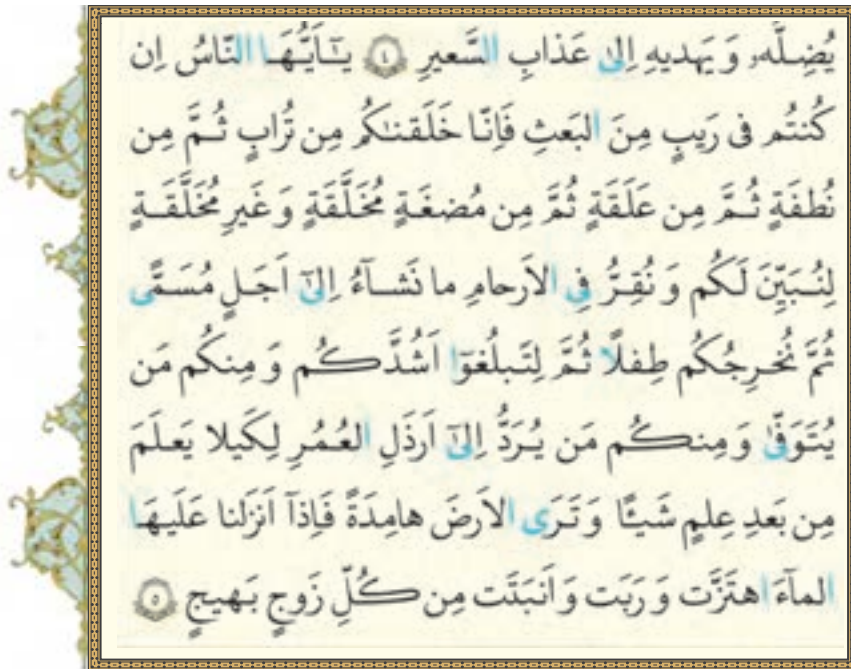 يُضِلُّهُۥ وَ يَهديهِ اِلىٰ عَذابِ السَّعيرِ ﴿٤﴾ يٰٓاَيُّهَا النّاسُ اِن
كُنتُم فى رَيبٍ مِنَ البَعثِ فَاِنّا خَلَقنٰكُم مِن تُرابٍ ثُمَّ مِن
نُطفَةٍ ثُمَّ مِن عَلَقَةٍ ثُمَّ مِن مُضغَةٍ مُخَلَّقَةٍ وَ غَيرِ مُخَلَّقَةٍ
لِنُبَيِّنَ لَكُم وَ نُقِرُّ فِى الاَرحامِ ما نَشآءُ اِلىٰٓ اَجَلٍ مُسَمًّى
ثُمَّ نُخرِجُكُم طِفلًا ثُمَّ لِتَبلُغوٓا اَشُدَّكُم وَ مِنكُم مَن
يُتَوَفّىٰ وَ مِنكُم مَن يُرَدُّ اِلىٰٓ اَرذَلِ العُمُرِ لِكَيلا يَعلَمَ
مِن بَعدِ عِلمٍ شَيـًٔا وَ تَرَى الاَرضَ هامِدَةً فَاِذآ اَنزَلنا عَلَيهَا
المآءَ اهتَزَّت وَ رَبَت وَ اَنبَتَت مِن كُلِّ زَوجٍ بَهيجٍ ﴿٥﴾